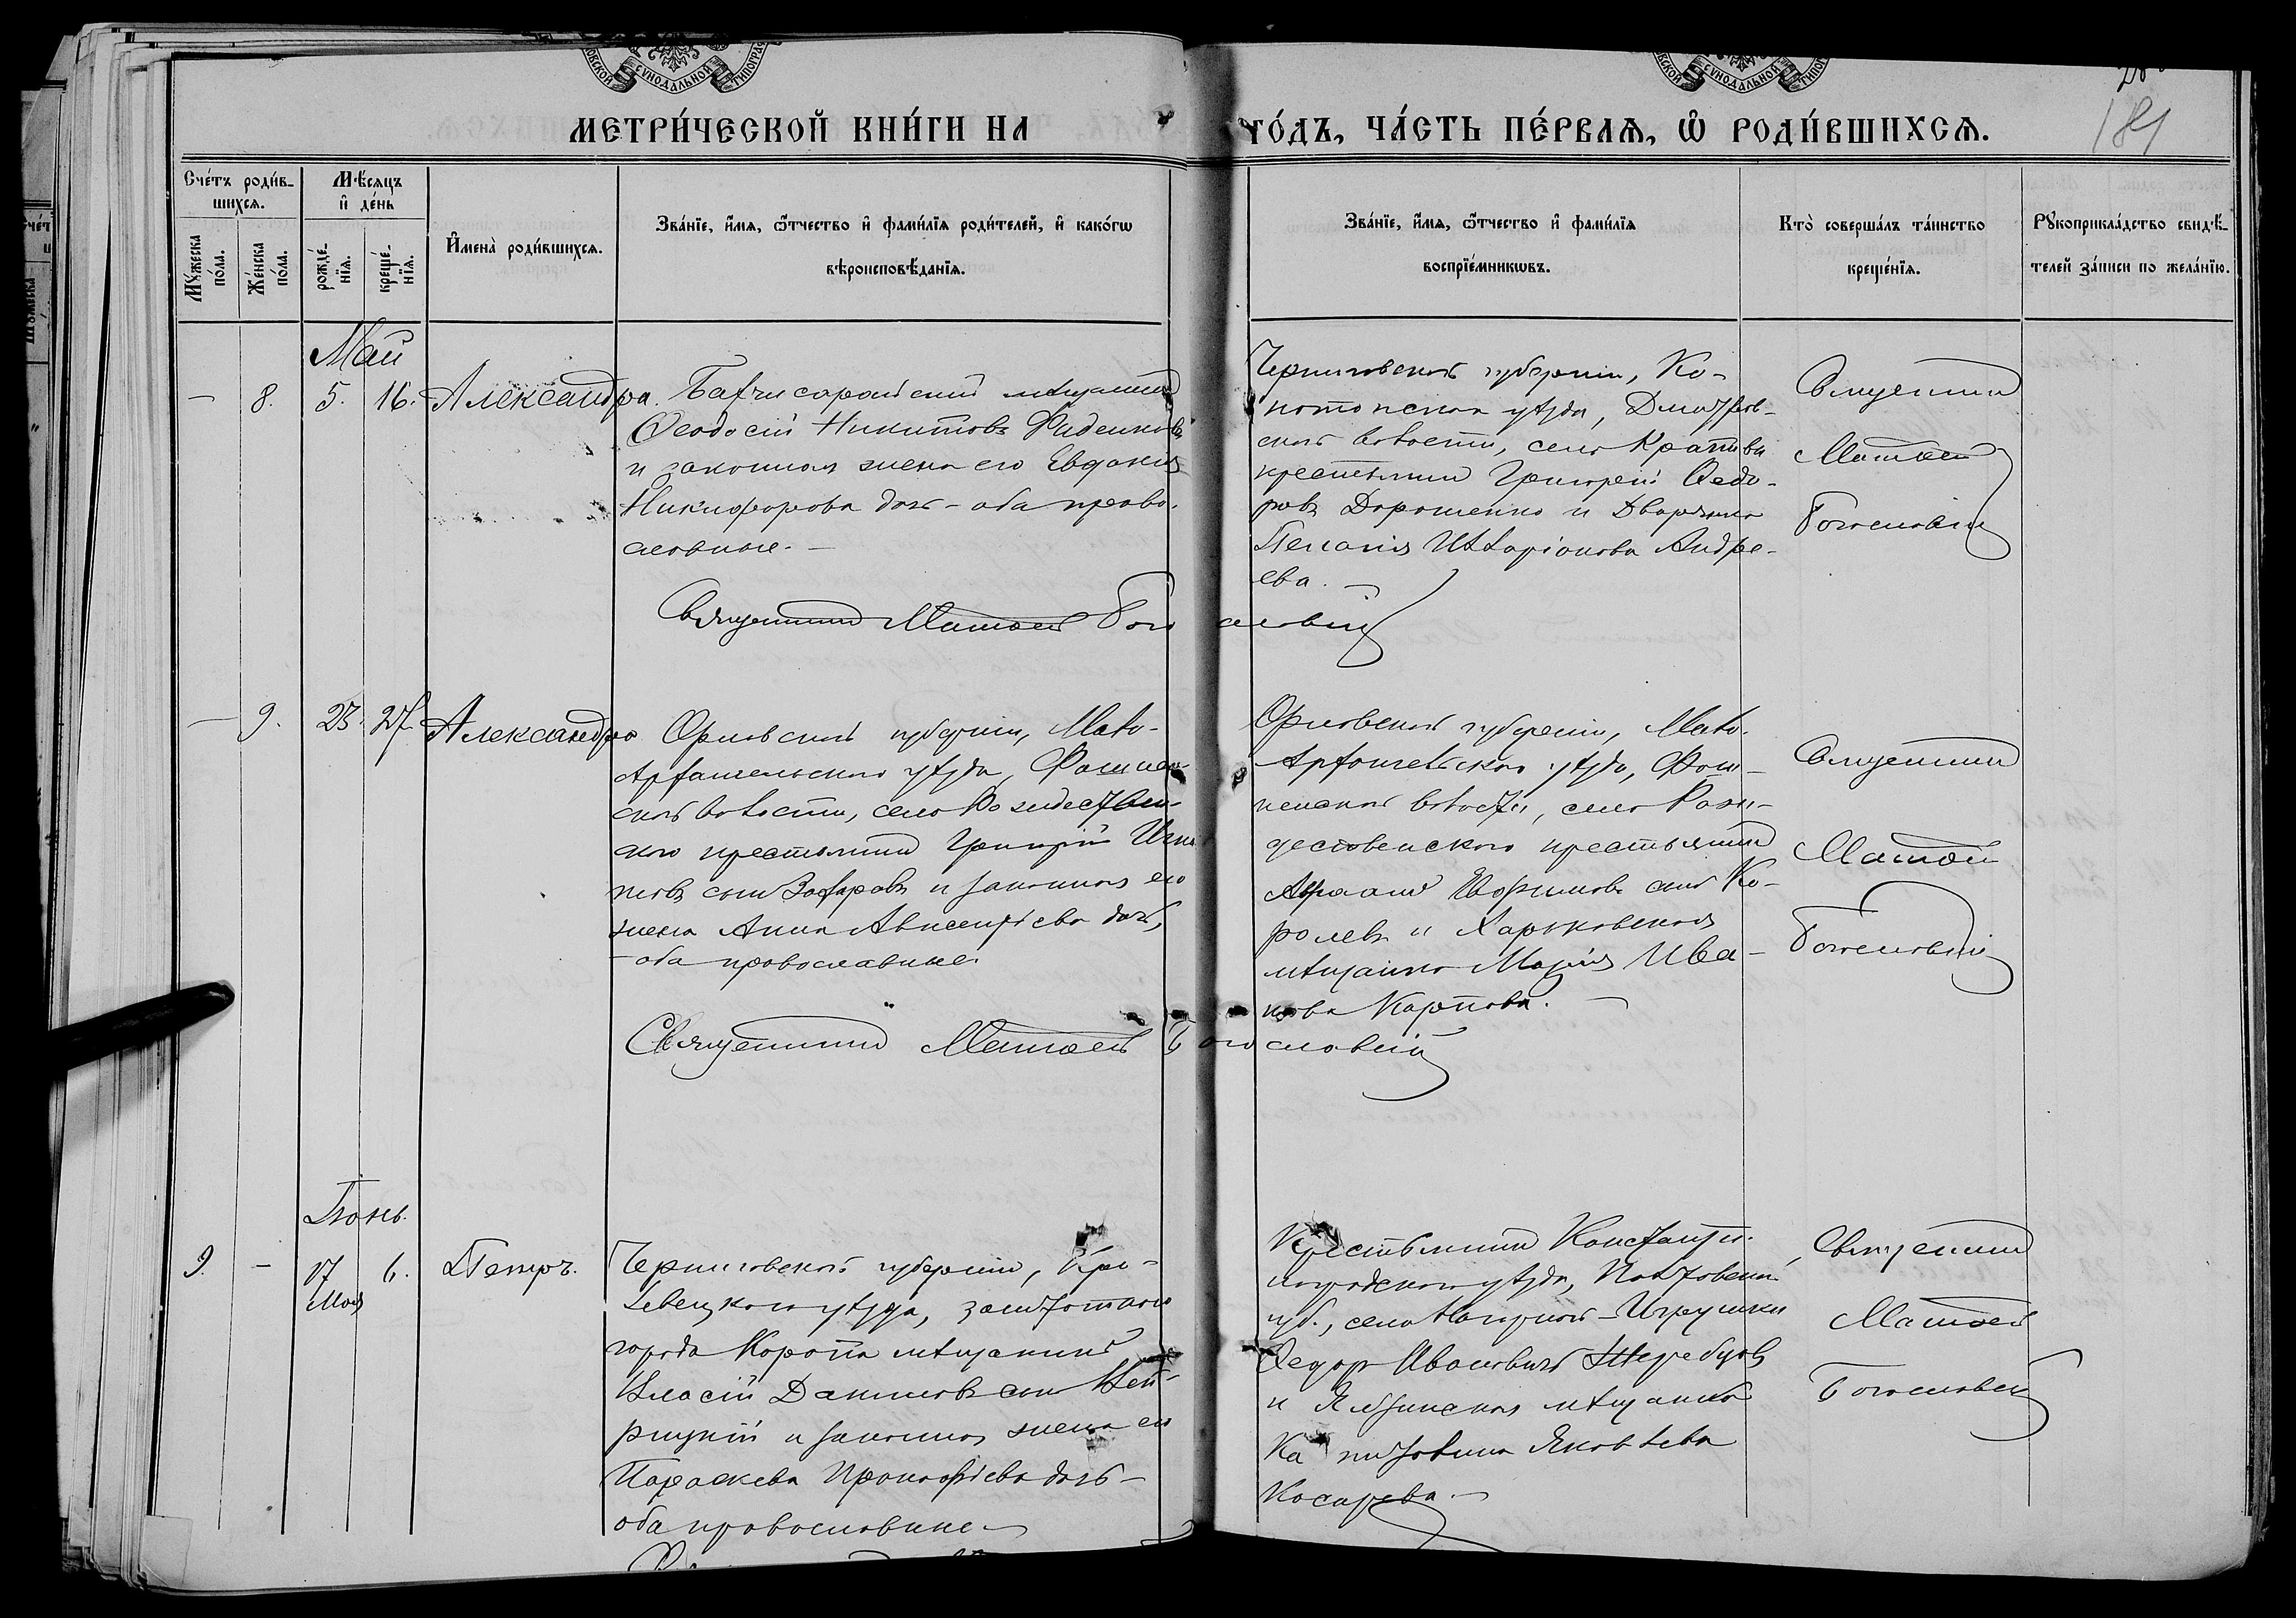 МЕТРИ́ЧЕСКОЙ КНИ́ГИ НА ГО́ДЪ, ЧА́СТЬ ПЕ́РВАѦ, Ѡ҆ РОДИ́ВШИХСѦ.
184
Сче́тъ роди́в-
шихсѧ.
Мꙋ́жеска по́ла.
Же́нска по́ла.
Мѣ́сѧцъ
и҆ де́нь
рожде́-
нїѧ.
креще́-
нїѧ.
И҆мена̀ роди́вшихсѧ.
Зва́нїе, и҆́мѧ, ѻ҆́тчество и҆ фами́лїѧ роди́телей, и҆ како́гѡ
вѣроисповѣ́данїѧ.
Зва́нїе, и҆́мѧ, ѻ҆́тчество и҆ фами́лїѧ
воспрїе́мникѡвъ.
Кто̀ соверша́лъ та́инство
креще́нїѧ.
Рꙋкоприкла́дство свидѣ́-
телей за́писи по жела́нїю.
Май
— 8. 5. 16. Александра.
Бахчисарайский мѣщанинъ
Ѳеодосій Никитовъ
и законная жена его Евдокия
Никифорова дочь – оба право-
славные. —
Черниговской губерніи, Ко-
нотопскаго уѣзда, Дмитров-
ской волости, села
крестьянин Григорій Ѳедо-
ровъ Дорошенко и Дворянка
Пелагія Илларіонова Андре-
ева. —
Священник
Матвей
Богословскій
Священник Матвей Богословскій
— 9. 23. 27. Александра
Орловской губерніи, Мало-
Архангельского уѣзда,
ской волости, села Рождествен-
ского крестьянин Григорій
сын Захаровъ и законная его
жена Анна Авксентіева дочь,
– оба православные.
Орловской губерніи, Мало-
Архангельского уѣзда,
волости, села Рож-
дественского крестьянин
сын Ко-
ролевъ и Харьковская
мѣщанка Марія Ива-
нова Карпова. —
Священник
Матвей
Богословскій
Священник Матвей Богословскій
Іюнь.
9. — 17 6. Петръ.
Мая
Черниговской губерніи, Кро-
левецкого уѣзда, заштатного
города Коропа мѣщанинъ
Власій Данилов сын
и законная жена его
Параскева Прокофіева дочь –
оба православные —
Крестьянин Константи-
ноградского уѣзда, Полтавской
губ., села
Федор Иванович Жеребцовъ
и Ялтинская мѣщанка
Капитолина Яковлева
Косарева. —
Священник
Матвей
Богословскій